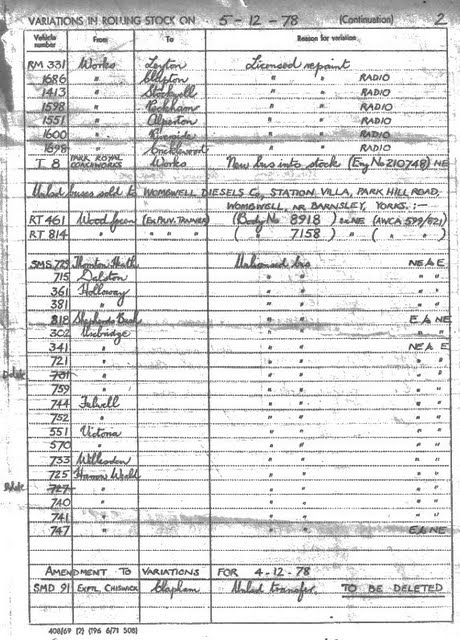 VARIATIONS IN ROLLING STOCK ON 5-12-78 (Continuation) 2
Vehicle number From To Reason for variation
RM 331 Works Leyton Licensed repaint
1686 " Clapton " " RADIO
1413 " Stockwell " " RADIO
1598 " Peckham " " RADIO
1551 " Alperton " " RADIO
1600 " Riverside " " RADIO
1698 " Cricklewood " " RADIO
T 8 PARK ROYAL COACHWORKS Works New bus into stock (Eng No 210748) NE
Unlicd buses sold to WOMBWELL DIESELS Co, STATION VILLA, PARK HILL ROAD,
WOMBWELL, NR BARNSLEY, YORKS. :—
RT 461 Wood Green (EX PRIV. TRAINER) (Body No 8918) NE (AWCA 599/621)
RT 814 " " " " ( " 7158 ) " ( " " )
SMS 729 Thornton Heath Unlicensed bus NE & E
715 Dalston " " " "
361 Holloway " " " "
381 " " " " "
818 Shepherds Bush " " E & NE
302 Uxbridge " " " "
341 " " " NE & E
721 " " " " "
Delete 731 " " " " "
759 " " " " "
744 Fulwell " " " "
752 " " " " "
551 Victoria " " " "
570 " " " " "
733 Willesden " " " "
725 Harrow Weald " " " "
Delete 727 " " " " "
740 " " " " "
741 " " " " "
747 " " " E & NE
AMENDMENT TO VARIATIONS FOR 4-12-78
SMD 91 EXPTL, CHISWICK Clapham Unlicd transfer. TO BE DELETED
408/69 (2) (196 6/71 508)